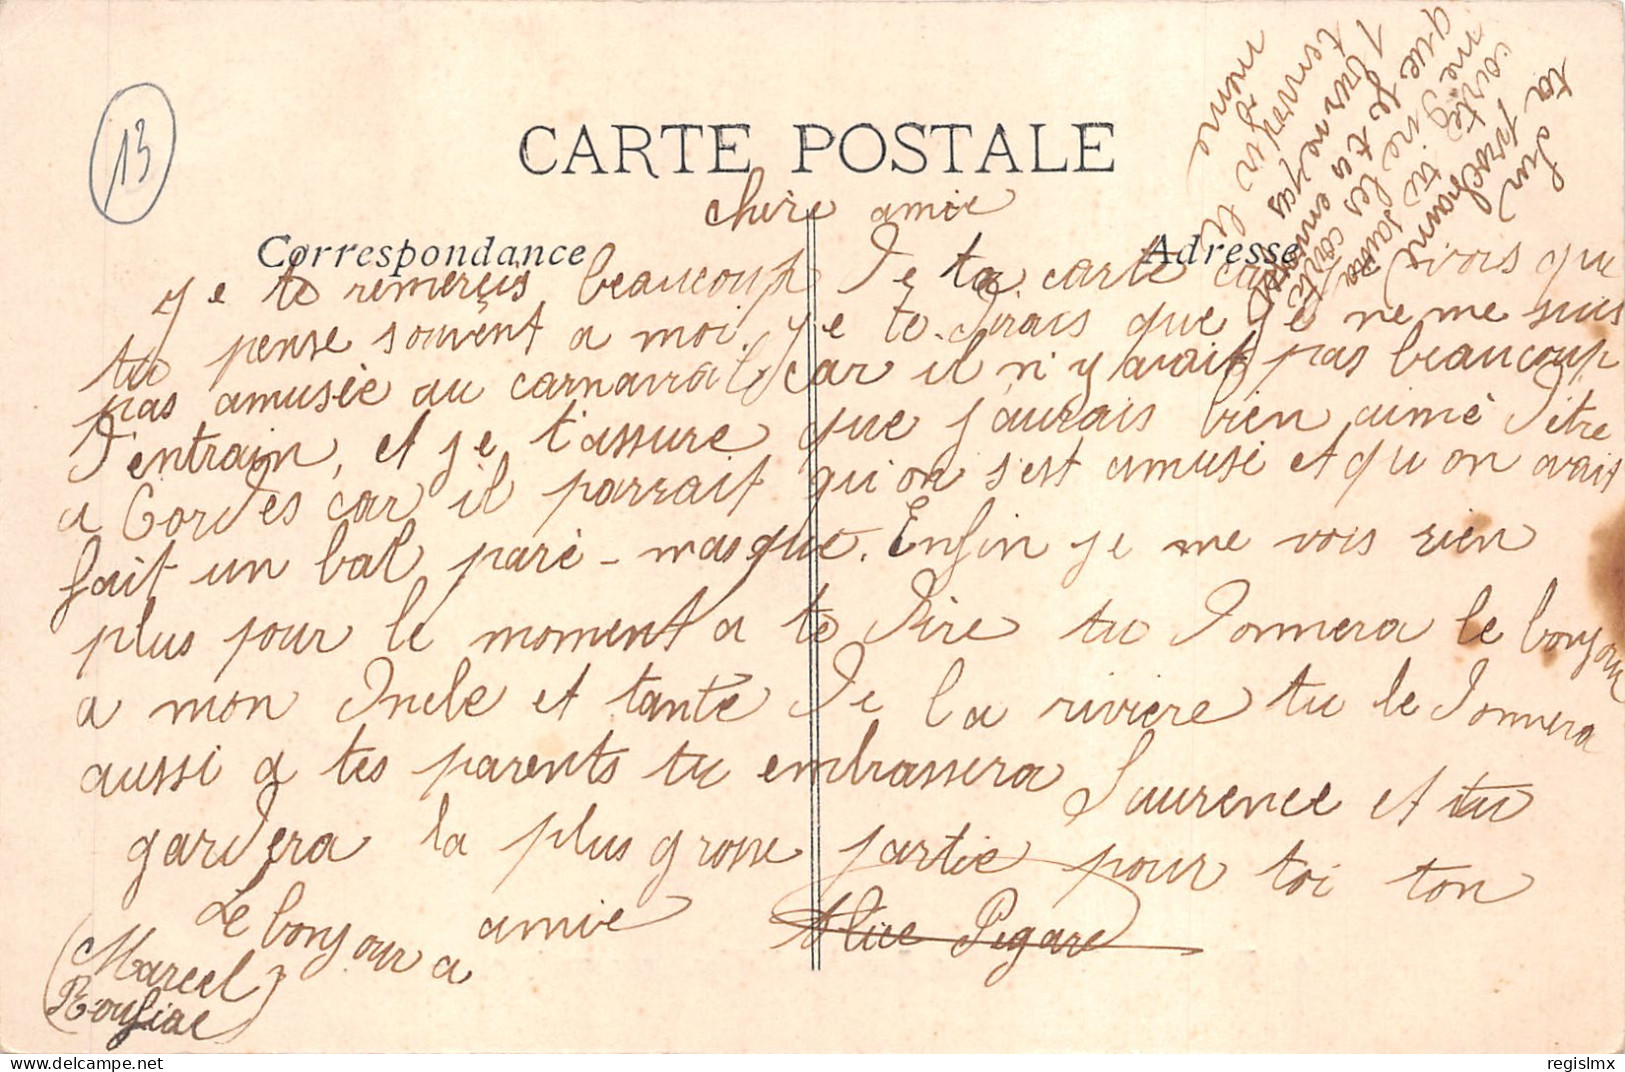 13
CARTE POSTALE
chère amie
Correspondance
Adresse
Je te remerçis beaucoup De ta carte car je vois que
tu pense souvent a moi. Je te Dirais que Je ne me suis
pas amusée au carnaval car il n'y avait pas beaucoup
D'entrain, et je t'assure que j'aurais bien aimé D'être
a Cordes car il parrait qu'on s'est amusé et qu'on avait
fait un bal paré-masqué. Enfin je me vois rien
plus pour le moment a te Dire tu Donnera le bonjour
a mon Oncle et tante De la rivière tu le Donnera
aussi a tes parents tu embrassera Laurence et tu
gardera la plus grosse partie pour toi ton
amie Alice Pigare
Le bonjour a
(Marcel
Roufiac)
ta prochaine
carte tu
me Dira
que les
1 Je te
même